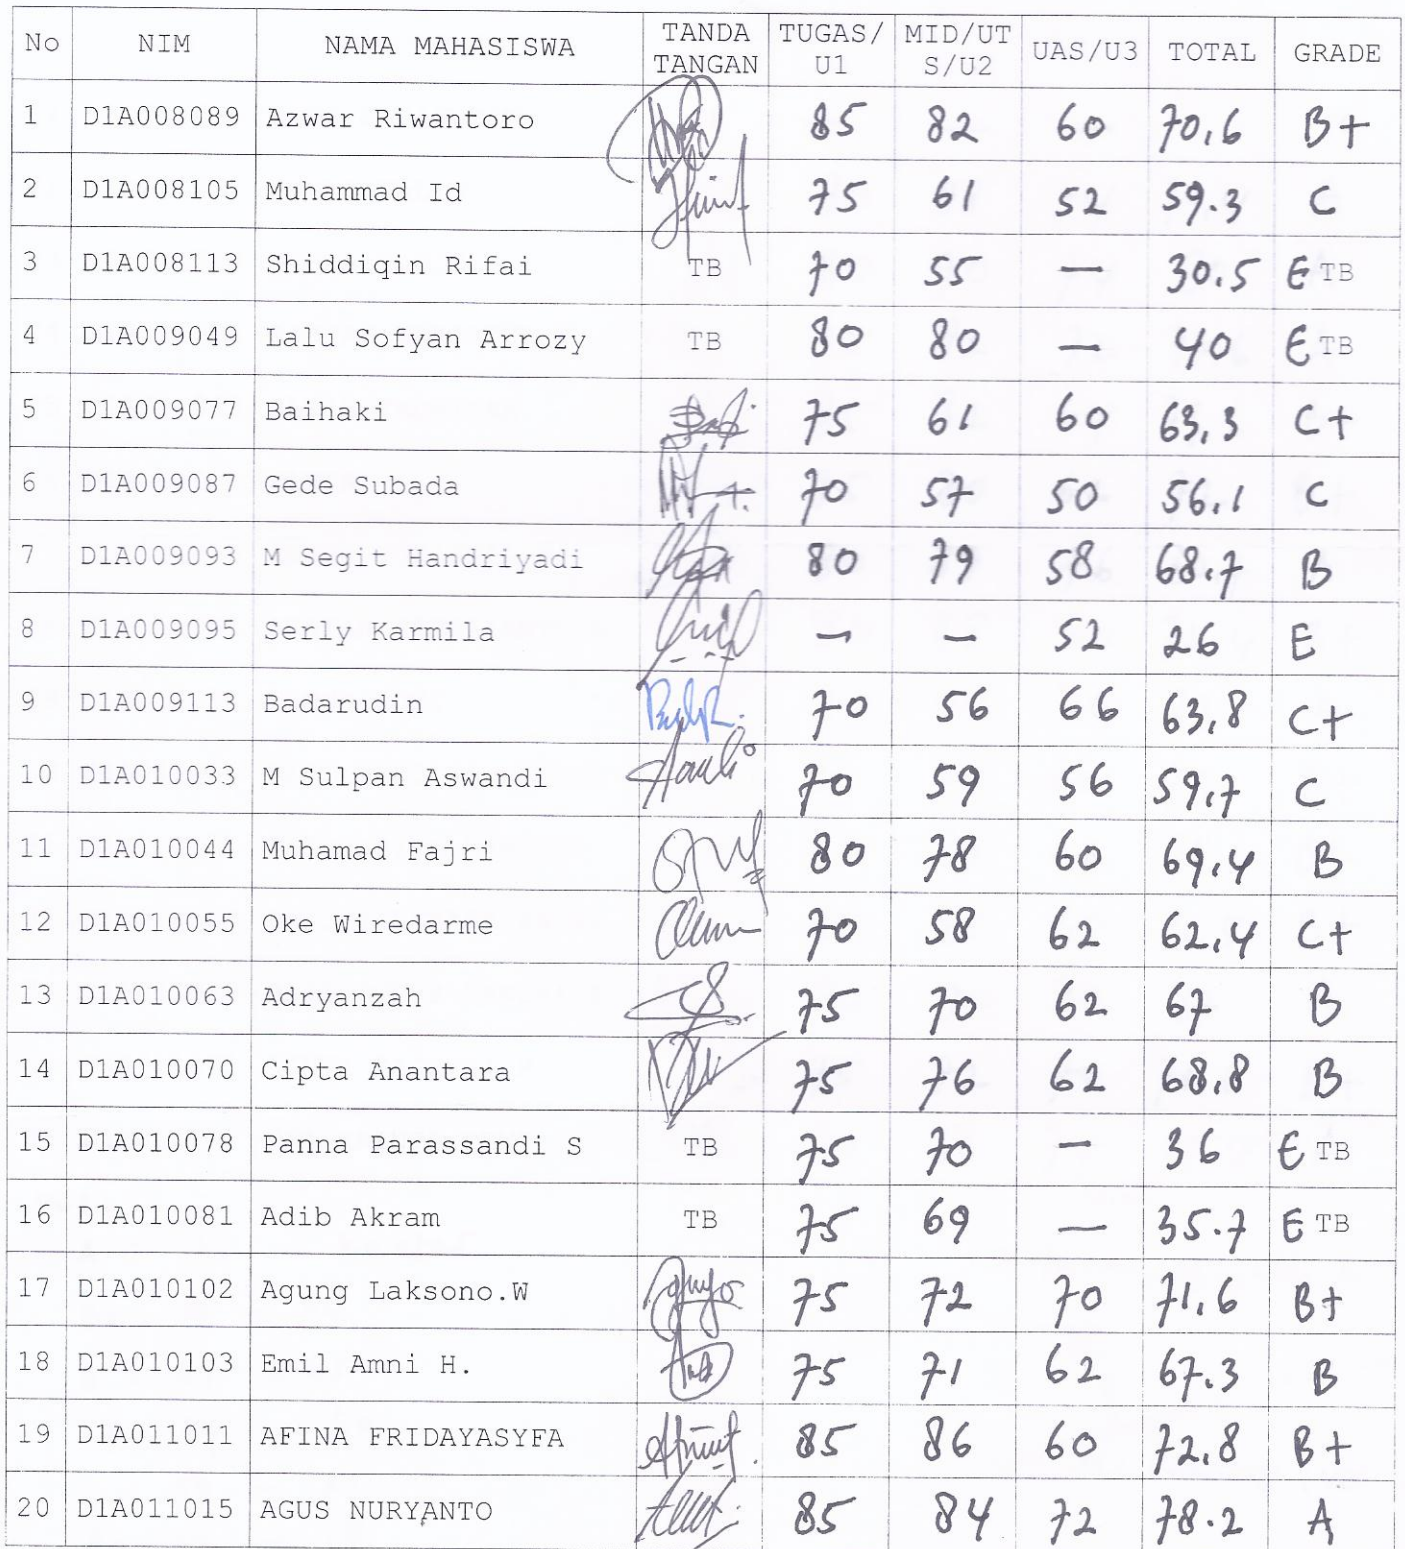 No NIM NAMA MAHASISWA TANDA TANGAN TUGAS/U1 MID/UTS/U2 UAS/U3 TOTAL GRADE
1 D1A008089 Azwar Riwantoro 85 82 60 70,6 B+
2 D1A008105 Muhammad Id 75 61 52 59.3 C
3 D1A008113 Shiddiqin Rifai TB 70 55 — 30.5 E TB
4 D1A009049 Lalu Sofyan Arrozy TB 80 80 — 40 E TB
5 D1A009077 Baihaki 75 61 60 63,3 C+
6 D1A009087 Gede Subada 70 57 50 56,1 C
7 D1A009093 M Segit Handriyadi 80 79 58 68.7 B
8 D1A009095 Serly Karmila — — 52 26 E
9 D1A009113 Badarudin 70 56 66 63,8 C+
10 D1A010033 M Sulpan Aswandi 70 59 56 59,7 C
11 D1A010044 Muhamad Fajri 80 78 60 69,4 B
12 D1A010055 Oke Wiredarme 70 58 62 62,4 C+
13 D1A010063 Adryanzah 75 70 62 67 B
14 D1A010070 Cipta Anantara 75 76 62 68,8 B
15 D1A010078 Panna Parassandi S TB 75 70 — 36 E TB
16 D1A010081 Adib Akram TB 75 69 — 35.7 E TB
17 D1A010102 Agung Laksono.W 75 72 70 71,6 B+
18 D1A010103 Emil Amni H. 75 71 62 67.3 B
19 D1A011011 AFINA FRIDAYASYFA 85 86 60 72,8 B+
20 D1A011015 AGUS NURYANTO 85 84 72 78.2 A